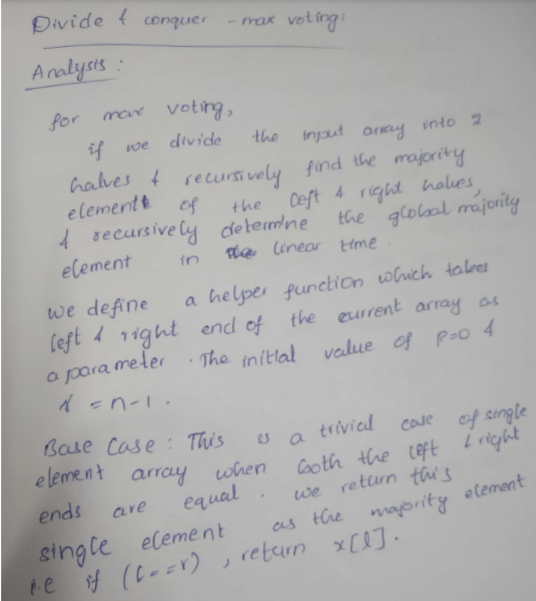 Divide & conquer - max voting:
Analysis :
for max voting,
if we divide the input array into 2
halves & recursively find the majority
element of the left & right halves,
& recursively determine the global majority
element in linear time.
we define a helper function which takes
left & right end of the current array as
a parameter. The initial value of l=0 &
r = n-1.
Base Case : This is a trivial case of single
element array when both the left & right
ends are equal. we return this
single element as the majority element
i.e if (l==r), return x[l].